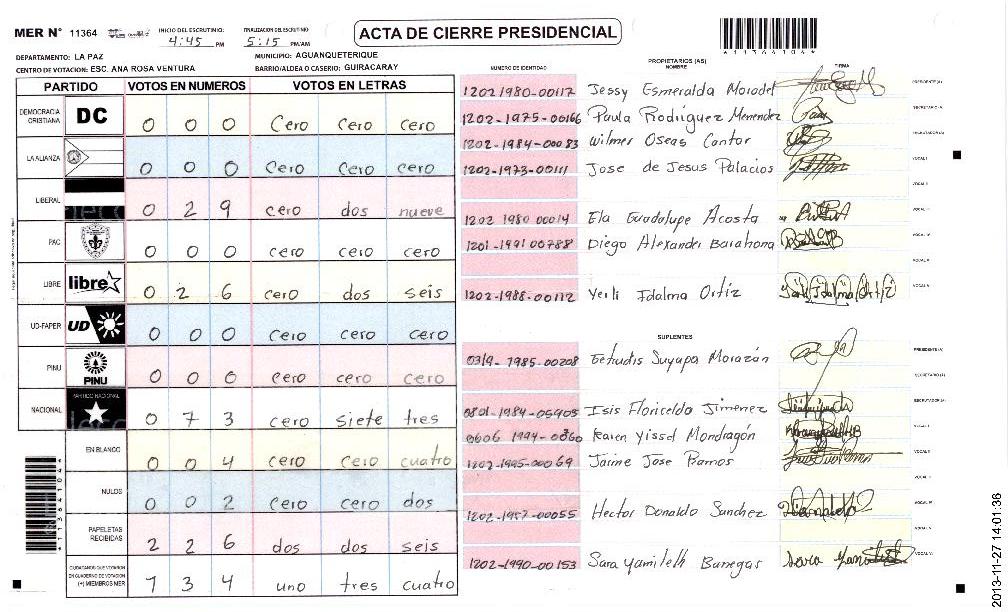 MER N° 11364
INICIO DEL ESCRUTINIO: 4:45 PM
FINALIZACION DEL ESCRUTINIO: 5:15 PM/AM
ACTA DE CIERRE PRESIDENCIAL
*11364104*
DEPARTAMENTO: LA PAZ
MUNICIPIO: AGUANQUETERIQUE
CENTRO DE VOTACION: ESC. ANA ROSA VENTURA
BARRIO/ALDEA O CASERIO: GUIRACARAY
PARTIDO VOTOS EN NUMEROS VOTOS EN LETRAS
DEMOCRACIA CRISTIANA DC 0 0 0 cero cero cero
LA ALIANZA 0 0 0 cero cero cero
LIBERAL 0 2 9 cero dos nueve
PAC 0 0 0 cero cero cero
LIBRE libre 0 2 6 cero dos seis
UD-FAPER UD 0 0 0 cero cero cero
PINU PINU 0 0 0 cero cero cero
NACIONAL PARTIDO NACIONAL 0 7 3 cero siete tres
EN BLANCO 0 0 4 cero cero cuatro
NULOS 0 0 2 cero cero dos
PAPELETAS RECIBIDAS 2 2 6 dos dos seis
CIUDADANOS QUE VOTARON EN CUADERNO DE VOTACION (+) MIEMBROS MER 1 3 4 uno tres cuatro
*11364104*
NUMERO DE IDENTIDAD PROPIETARIOS (AS) NOMBRE FIRMA
1202 1980-00117 Jessy Esmeralda PRESIDENTE(A)
1202-1975-00166 Paula Rodriguez Menendez SECRETARIO(A)
1202-1984-00083 Wilmer Oseas Cantor ESCRUTADOR(A)
1202-1973-00111 Jose de Jesus Palacios VOCAL I
VOCAL II
1202 1980 00014 Ela Guadalupe Acosta VOCAL III
1201-1991 00788 Diego Alexander Barahona VOCAL IV
VOCAL V
1202-1988-00112 Yerli Idalma Ortiz VOCAL VI
SUPLENTES
0319-1985-00208 Suyapa Morazán PRESIDENTE(A)
SECRETARIO (A)
0801-1984-05905 Isis Floricelda Jimenez ESCRUTADOR(A)
0606 1994-00360 Karen Yissel Mondragón VOCAL I
1202-1995-00069 Jaime Jose Ramos VOCAL II
VOCAL III
1202-1957-00055 Hector Donaldo Sanchez VOCAL IV
VOCAL V
1202-1990-00153 Sara Yamileth Banegas VOCAL VI
2013-11-27 14:01:36